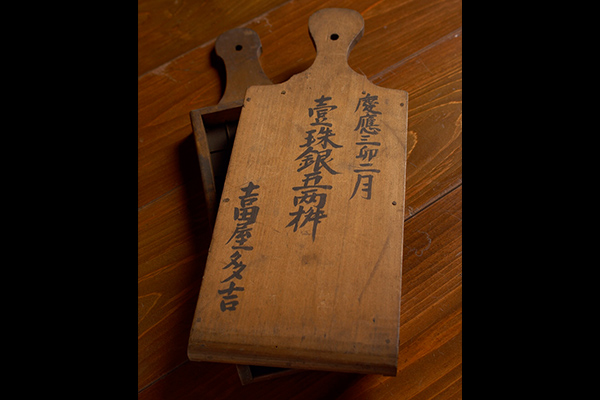 慶應三卯二月
壹珠銀五両桝
吉田屋多吉